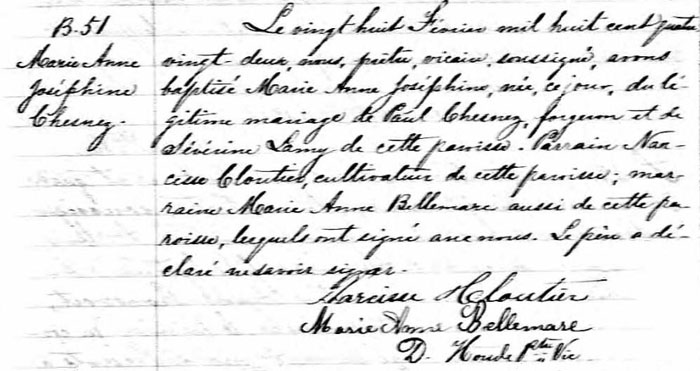 B. 51
Marie Anne
Joséphine
Chesnez.
Le vingt huit Février mil huit cent quatre
vingt-deux, nous, prêtre, vicaire, soussigné, avons
baptisé Marie Anne Joséphine, née, ce jour, du lé-
gitime mariage de Paul Chesnez, forgeron et de
Sévérine Lamy de cette paroisse. Parrain Nar-
cisse Cloutier, cultivateur de cette paroisse; mar-
raine Marie Anne Bellemare aussi de cette pa-
roisse, lesquels ont signé avec nous. Le père a dé-
claré ne savoir signer.
Narcisse H Cloutier
Marie Anne Bellemare
D. Houde Ptre Vic